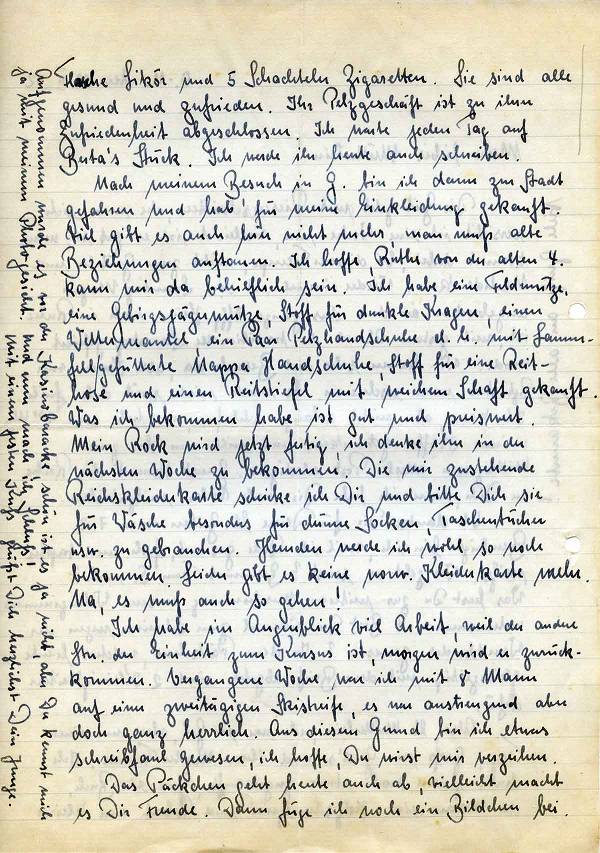 Flasche Likör und 5 Schachteln Zigaretten. Sie sind alle
gesund und zufrieden. Ihr Pelzgeschäft ist zu ihrer
Zufriedenheit abgeschlossen. Ich warte jeden Tag auf
Berta's Stück. Ich werde ihr heute auch schreiben.
Nach meinem Besuch in G. bin ich dann zur Stadt
gefahren und hab' für meine Einkleidung gekauft.
Viel gibt es auch hier nicht mehr, man muß alte
Beziehungen auftauen. Ich hoffe, Ruths von der alten 4.
kann mir da behilflich sein. Ich habe eine Feldmütze,
eine Gebirgsjägermütze, Stoff für dunkle Kragen, einen
Wettermantel, ein Paar Pelzhandschuhe d. h. mit Lamm-
fell gefütterte Nappa-Handschuhe, Stoff für eine Reit-
hose und einen Reitstiefel mit weichem Schaft gekauft.
Was ich bekommen habe ist gut und preiswert.
Mein Rock wird jetzt fertig, ich denke ihn in der
nächsten Woche zu bekommen. Die mir zustehende
Reichskleiderkarte schicke ich Dir und bitte Dich sie
für Wäsche besonders für dünne Socken, Taschentücher
usw. zu gebrauchen. Hemden werde ich wohl so noch
bekommen. Leider gibt es keine norw. Kleiderkarte mehr.
Na, es muß auch so gehen!
Ich habe im Augenblick viel Arbeit, weil der andere
Stn. der Einheit zum Kursus ist, morgen wird er zurück-
kommen. Vergangene Woche war ich mit 8 Mann
auf einer zweitägigen Skistreife, es war anstrengend aber
doch ganz herrlich. Aus diesem Grund bin ich etwas
schreibfaul gewesen, ich hoffe, Du wirst mir verzeihen.
Das Päckchen geht heute auch ab, vielleicht macht
es Dir Freude. Dann füge ich noch ein Bildchen bei.
Aufgenommen wurde es vor der Kasinobaracke, schön ist es ja nicht, aber Du kennst mich
ja mit meinem Photogesicht. Und nun mach' ich Schluß!
Mit einem festen Kuß grüßt Dich herzlichst Dein Junge.